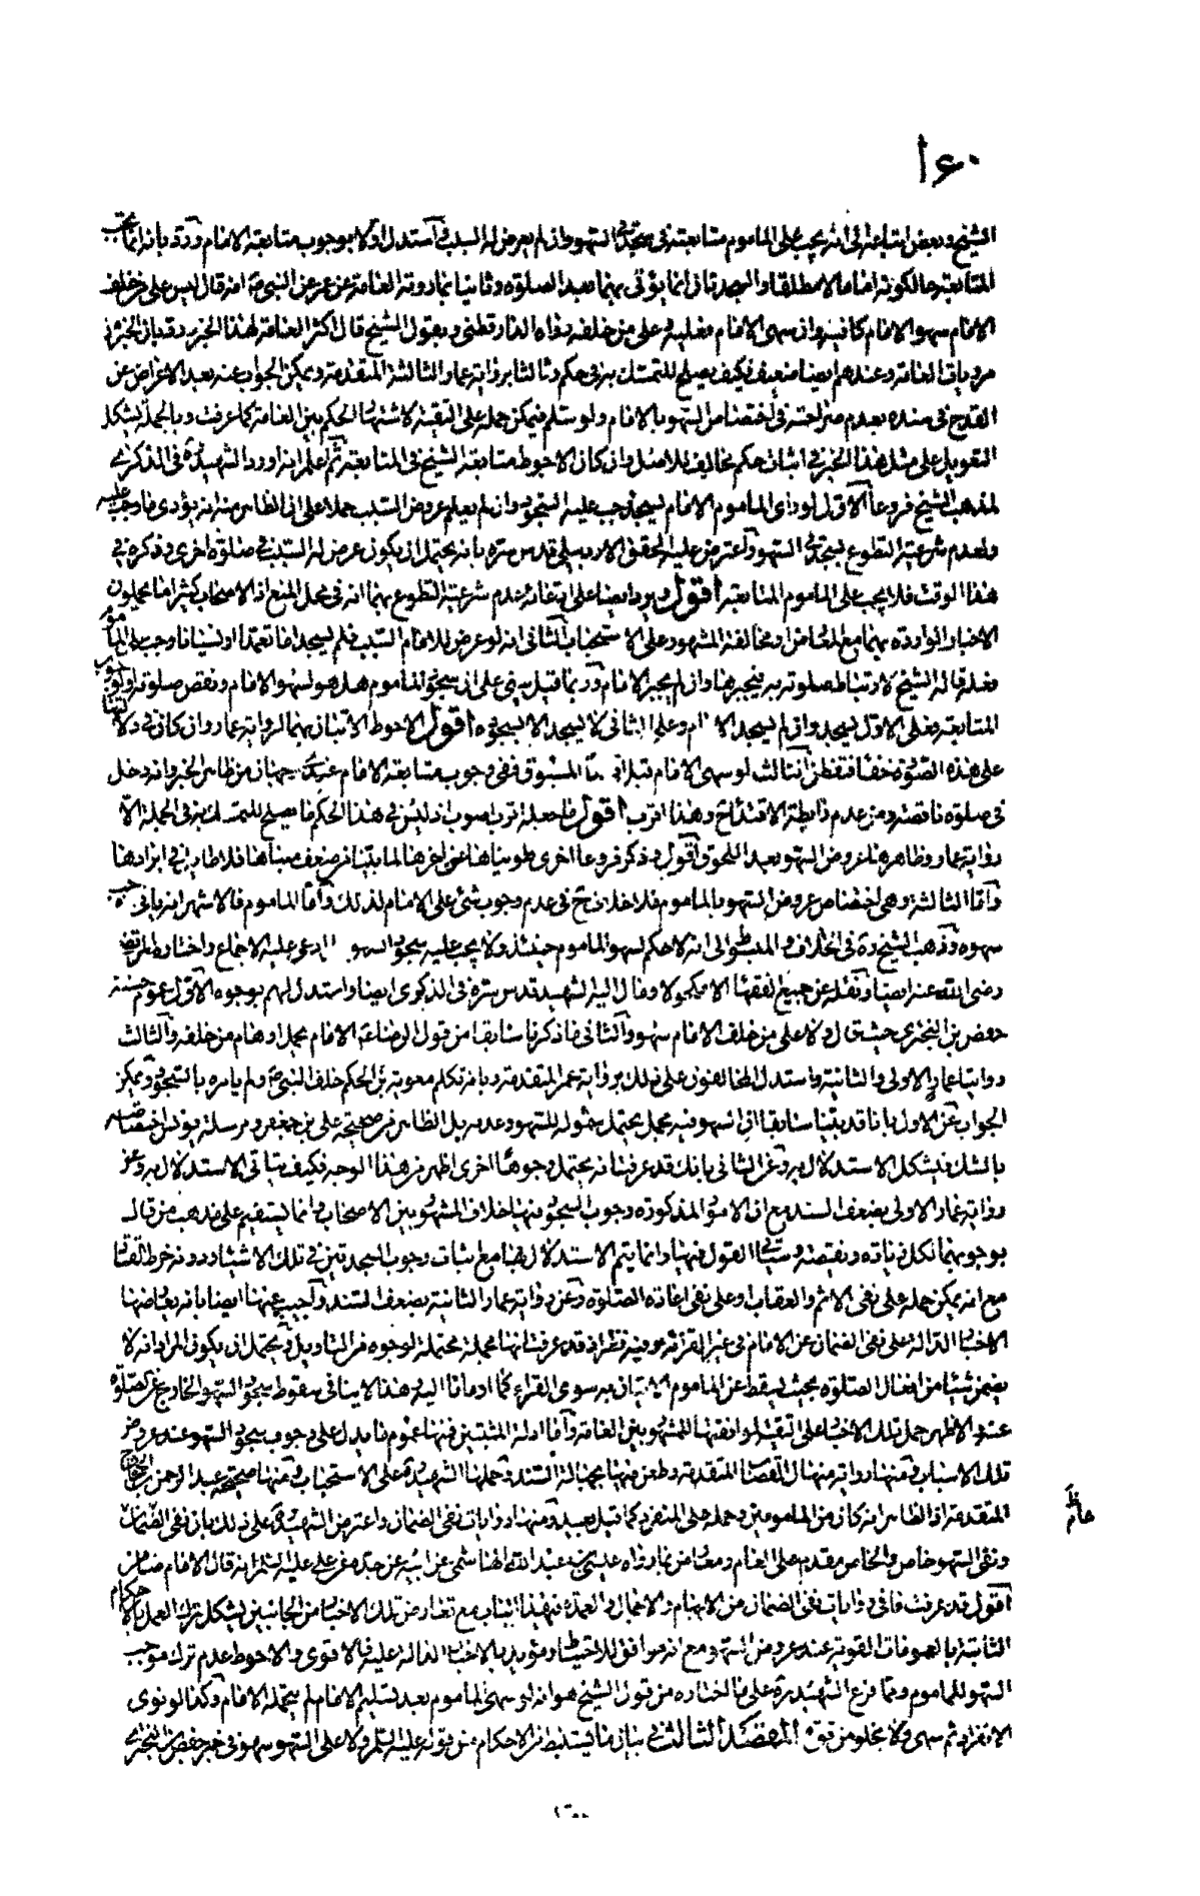 ١٦٠
الشيخ وبعض اتباعه الى انه يجب على الماموم متابعته في سجدتي السهو وان لم يعرض له السبب واستدل اولا بوجوب متابعة الامام ورد بانه انما يجب
المتابعة حال كونه اماما لا مطلقا والسجدتان انما يؤتى بهما بعد الصلوة وثانيا بما روته العامة عن عمر عن النبي ص انه قال ليس على من خلف
الامام سهو الامام كافيه وان سهى الامام فعليه وعلى من خلفه رواه الدارقطني وبقول الشيخ قال اكثر العامة لهذا الخبر ورد بان الخبر من
مرويات العامة وعندهم ايضا ضعيف فكيف يصلح للتمسك به في حكم وثالثا برواية عمار الثالثة المتقدمة ويمكن الجواب عنه بعد الاغراض عن
القدح في سنده بعدم صراحته في اختصاص السهو بالامام ولو سلم فيمكن حمله على التقية لاشتهار الحكم بين العامة كما عرفت وبالجملة يشكل
التعويل على مثل هذا الخبر في اثبات حكم مخالف للاصل وان كان الاحوط متابعة الشيخ في المتابعة ثم اعلم انه اورد الشهيد ره في الذكرى
لمذهب الشيخ فروعا الاول لو راى الماموم الامام يسجد وجب عليه السجود وان لم يعلم عروض السبب حملا على ان الظاهر منه انه يؤدي ما وجب عليه
ولعدم شرعية التطوع بسجدتي السهو واعترض عليه المحقق الاردبيلي قدس سره بانه يحتمل ان يكون عرض له السبب في صلوة اخرى وذكره في
هذا الوقت فلا يجب على الماموم المتابعة اقول ويرد ايضا على ابتنائه عدم شرعية التطوع بهما انه في محل المنع اذ الاصحاب كثيرا ما يحملون
الاخبار الواردة بهما مع المعارض ومخالفة المشهور على الاستحباب الثاني انه لو عرض للامام السبب فلم يسجد اما تعمدا او نسيانا وجب على الماموم
فعله قاله الشيخ لارتباط صلوته به فيجبرها وان لم يجبر الامام وربما قيل يبنى على ان سجود الماموم هل هو لسهو الامام ونقص صلوته او لوجوب
المتابعة فعلى الاول يسجد وان لم يسجد الامام وعلى الثاني لا يسجد الا بسجوده اقول الاحوط الاتيان بهما لرواية عمار وان كان في دلالتها
على هذه الصورة خفاء فتفطن الثالث لو سهى الامام قبل اقتداء المسبوق ففي وجوب متابعة الامام عندي وجهان من ظاهر الخبر وانه دخل
في صلوة ناقصة ومن عدم رابطة الاقتداء ح وهذا اقرب اقول ما جعله اقرب اصوب اذ ليس في هذا الحكم ما يصلح للتمسك به في الجملة الا
رواية عمار وظاهرها عروض السهو بعد اللحوق اقول وذكر فروعا اخرى طويناها على غرها لما بينا من ضعف مبناها فلا طائل في ايرادها
واما الثالثة وهي اختصاص عروض السهو بالماموم فلا خلاف ح في عدم وجوب شئ على الامام لذلك واما الماموم فالاشهر انه ياتي بموجب
سهوه وذهب الشيخ ره في الخلاف والمبسوط الى انه لا حكم لسهو الماموم حينئذ ولا يجب عليه سجود السهو بل ادعى عليه الاجماع واختاره المرتضى
رضى الله عنه ايضا ونقله عن جميع الفقهاء الا مكحولا ومال اليه الشهيد قدس سره في الذكرى ايضا واستدل لهم بوجوه الاول عموم حسنة
حفص بن البختري حيث قال ولا على من خلف الامام سهو والثاني ما ذكرنا سابقا من قول الرضا ع الامام يحمل اوهام من خلفه والثالث
روايتا عمار الاولى والثانية واستدل المخالفون على ذلك برواية عمر المتقدمة وبانه تكلم معوية بن الحكم خلف النبي ص ولم يامره بالسجود ويمكن
الجواب عن الاول بانا قد بينا سابقا ان السهو فيه مجمل يحتمل شموله للسهو وعدمه بل الظاهر من صحيحة علي بن جعفر ومرسلة يونس اختصاصه
بالشك فيشكل الاستدلال به وعن الثاني بانك قد عرفت انه يحتمل وجوها اخرى اظهر من هذا الوجه فكيف يتاتى الاستدلال به وعن
رواية عمار الاولى بضعف السند مع ان الامور المذكورة وجوب السجود فيها خلاف المشهور بين الاصحاب وانما يستقيم على مذهب من قال
بوجوبهما لكل زيادة ونقيصة وسياتي القول فيها وانما يتم الاستدلال بها مع اثبات وجوب السجدتين في تلك الاشياء ودونه خرط القتاد
مع انه يمكن حمله على نفي الاثم والعقاب وعلى نفي اعادة الصلوة وعن رواية عمار الثانية بضعف السند واجيب عنها ايضا بانه يعارضها
الاخبار الدالة على نفي الضمان عن الامام في غير القراءة وفيه نظر اذ قد عرفت انها مجملة محتملة لوجوه من التاويل ويحتمل ان يكون المراد انه لا
يضمن شيئا من افعال الصلوة بحيث يسقط عن الماموم الاتيان به سوى القراءة كما اومانا اليه وهذا لا ينافي سقوط سجود السهو الخارج عن الصلوة
عنه والاظهر حمل تلك الاخبار على التقية لموافقتها للمشهور بين العامة واما ادلة المثبتين فمنها عموم ما يدل على وجوب سجود السهو عند عروض
تلك الاسباب ومنها رواية منهال القصاب المتقدمة وطعن فيها بجهالة السند وحملها الشهيد ره على الاستحباب ومنها صحيحة عبد الرحمن بن الحجاج
المتقدمة اذ الظاهر انه كان من المامومين وحمله على المنفرد كما قيل بعيد ومنها روايات نفي الضمان واعترض الشهيد ره على ذلك بان نفي الضمان عام
ونفي السهو خاص والخاص مقدم على العام ومعارض بما رواه عيسى بن عبد الله الهاشمي عن ابيه عن جده عن علي عليه السلام انه قال الامام ضامن
اقول قد عرفت ما في روايات نفي الضمان من الابهام والاجمال والعمدة في هذا الباب مع تعارض تلك الاخبار من الجانبين يشكل ترك العمل بالاحكام
الثابتة بالعمومات القوية عند عروض السهو مع انه موافق للاحتياط ومؤيد بالاخبار الدالة عليه فالاقوى والاحوط عدم ترك موجب
السهو للماموم ومما فرع الشهيد ره على ما اختاره من قول الشيخ هو انه لو سهى الماموم بعد تسليم الامام لم يتحمله الامام وكذا لو نوى
الانفراد ثم سهى ولا يخلو من قوة المقصد الثالث في بيان ما يستنبط من الاحكام من قوله عليه السلام ولا على السهو سهو في خبر حفص بن البختري